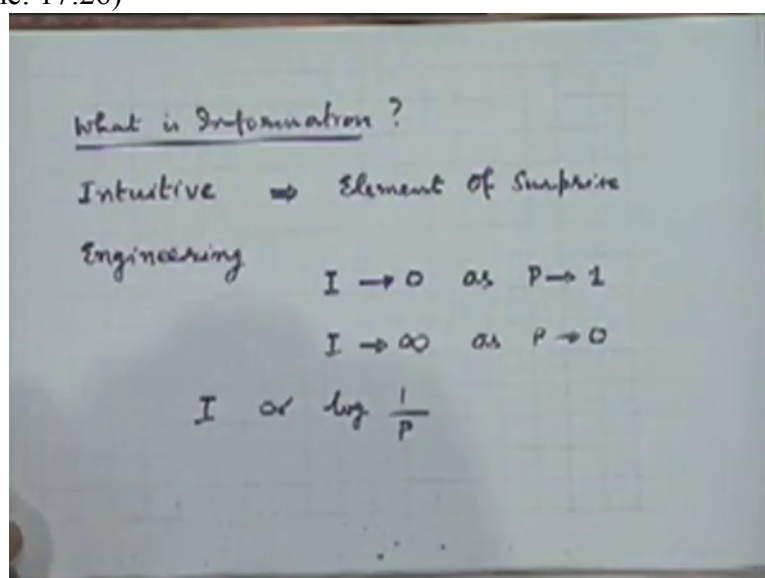 17:26)
What is Information ?
Intuitive ⇒ Element of Surprise
Engineering
I → 0 as P → 1
I → ∞ as P → 0
I α log 1/P